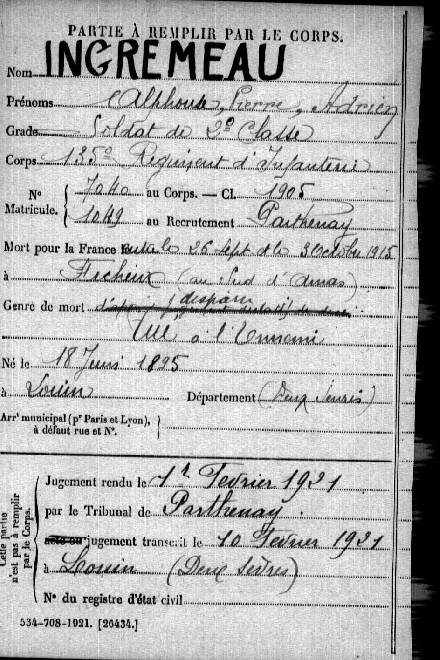 PARTIE À REMPLIR PAR LE CORPS.
Nom INGREMEAU
Prénoms Alphonse, Pierre, Adrien
Grade Soldat de 2e Classe
Corps 135e Régiment d'Infanterie
N° Matricule. 7040 au Corps. — Cl. 1905
1049 au Recrutement Parthenay
Mort pour la France entre le 26 Sept et le 3 Octobre 1915
à Ficheux (au Sud d'Arras)
Genre de mort disparu
Tué à l'Ennemi
Né le 18 Juin 1895
à Louin Département (Deux Sèvres)
Arrt municipal (pr Paris et Lyon),
à défaut rue et N°.
Cette partie n'est pas à remplir par le Corps.
Jugement rendu le 1r Fevrier 1921
par le Tribunal de Parthenay
acte ou jugement transcrit le 10 Fevrier 1921
à Louin (Deux Sèvres)
N° du registre d'état civil
534-708-1921. [26434.]